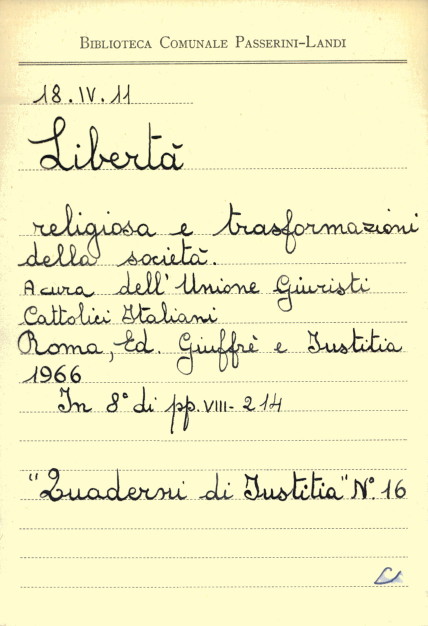 BIBLIOTECA COMUNALE PASSERINI-LANDI
18.IV.11
Libertà
religiosa e trasformazioni
della società.
A cura dell'Unione Giuristi
Cattolici Italiani
Roma, Ed. Giuffrè e Iustitia
1966
In 8° di pp. VIII-214
"Quaderni di Iustitia" N°. 16